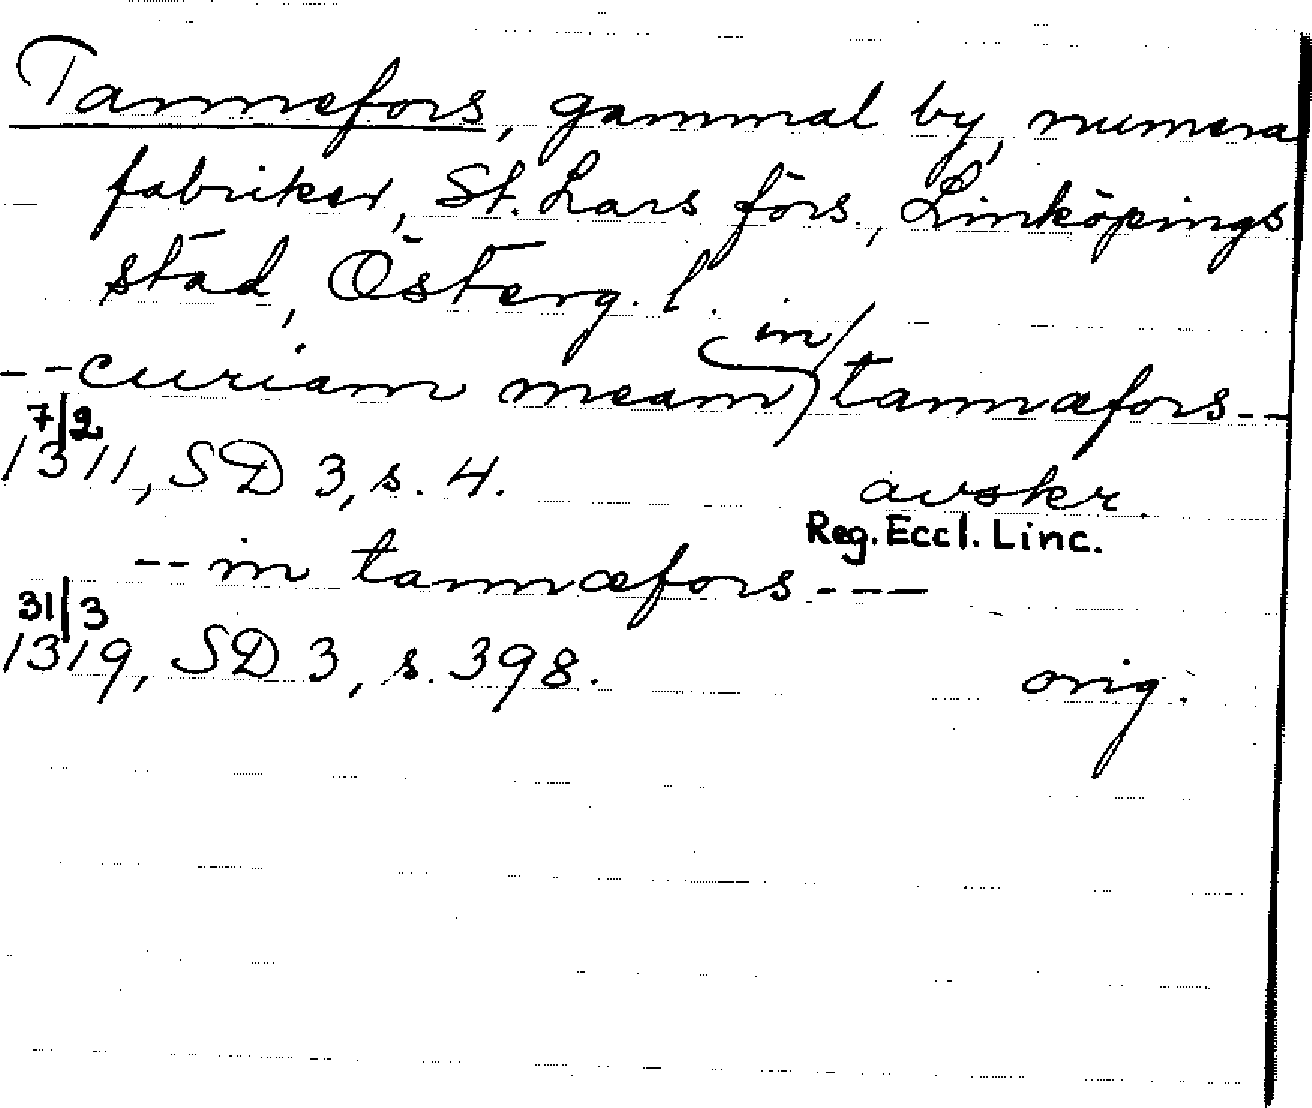 Tannefors, gammal by, numera
fabriker, St. Lars förs., Linköpings
stad, Österg. l.
-- curiam meam in tannæfors --
7/2
1311, SD 3, s. 4. avskr.
Reg. Eccl. Linc.
-- in tannæfors ---
31/3
1319, SD 3, s. 398. orig.